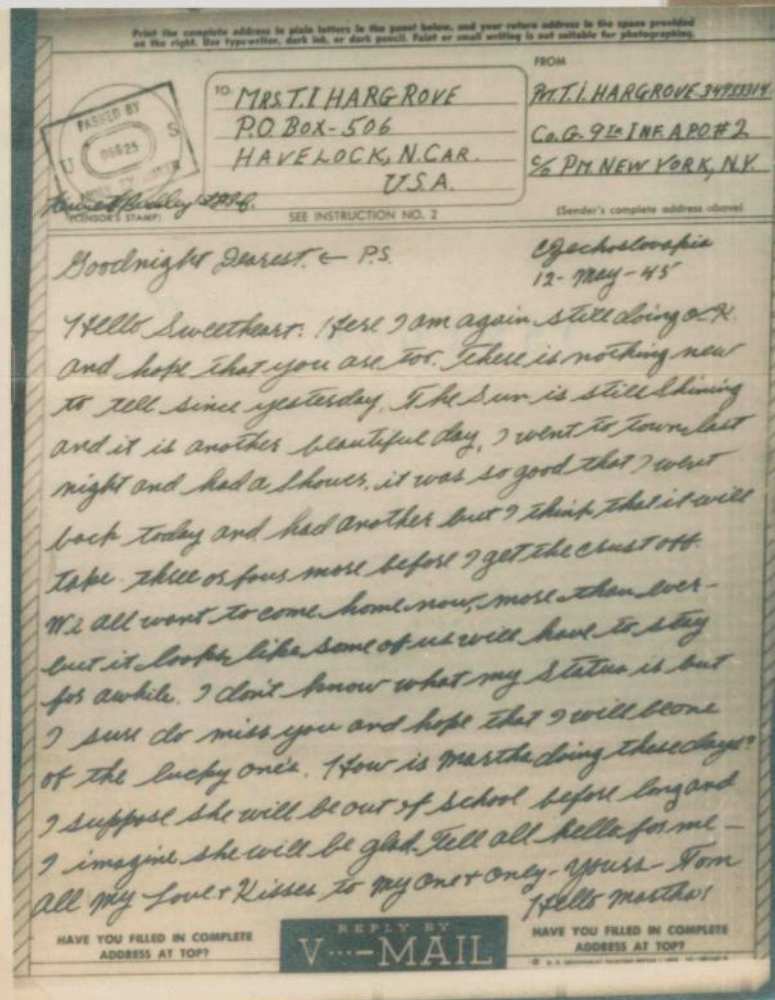 Print the complete address in plain letters in the panel below, and your return address in the space provided
on the right. Use typewriter, dark ink, or dark pencil. Faint or small writing is not suitable for photographing.
FROM
TO:
MRS. T.I HARGROVE
P.O. BOX-506
HAVELOCK, N.CAR.
U.S.A.
PVT. T. I. HARGROVE
Co. G. 9th INF. A.P.O. #2
c/o PM. NEW YORK, N.Y.
PASSED BY
U S
(CENSOR'S STAMP)
SEE INSTRUCTION NO. 2
(Sender's complete address above)
Goodnight Dearest. ← P.S.
Czechoslovakia
12-May-45
Hello Sweetheart: Here I am again still doing O.K.
and hope that you are too. There is nothing new
to tell since yesterday. The Sun is still Shining
and it is another beautiful day. I went to town last
night and had a Shower, it was so good that I went
back today and had another but I think that it will
take three or four more before I get the crust off.
We all want to come home now, more than ever-
but it looks like some of us will have to stay
for awhile. I don't know what my Status is but
I sure do miss you and hope that I will be one
of the lucky one's. How is Martha doing these days?
I suppose she will be out of School before long and
I imagine she will be glad. Tell all hello for me -
All my Love + Kisses to my one + only - Yours - Tom
Hello Martha!
HAVE YOU FILLED IN COMPLETE
ADDRESS AT TOP?
REPLY BY
V···-MAIL
HAVE YOU FILLED IN COMPLETE
ADDRESS AT TOP?